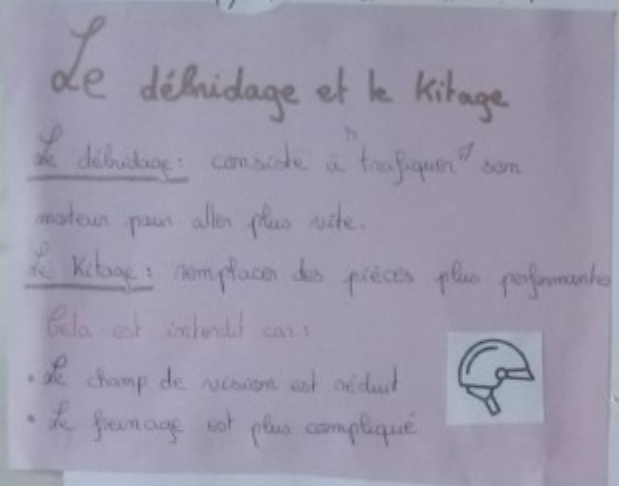 Le débridage et le Kitage
Le débridage : consiste à "trafiquer" son
moteur pour aller plus vite.
Le Kitage : remplacer des pièces plus performantes
Cela est interdit car :
• Le champ de vision est réduit
• Le freinage est plus compliqué